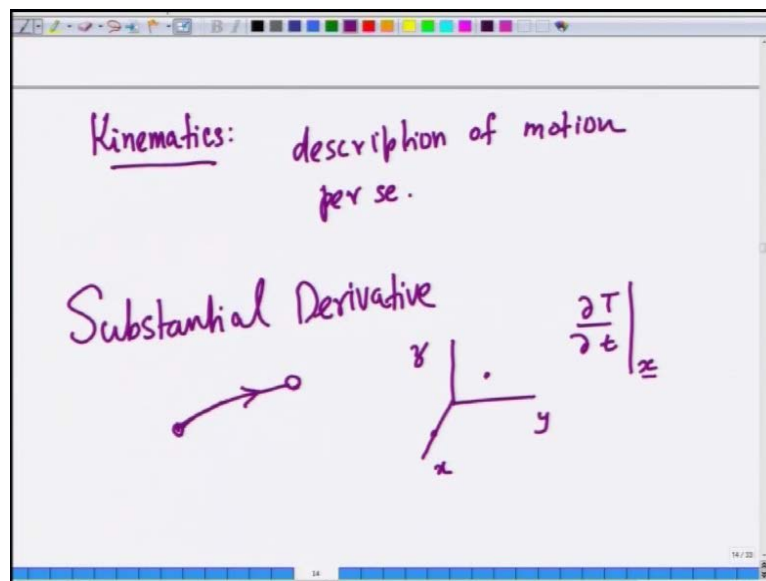 B I
Kinematics: description of motion
per se.
Substantial Derivative
∂T
∂t
x
z
y
x
14/33
14